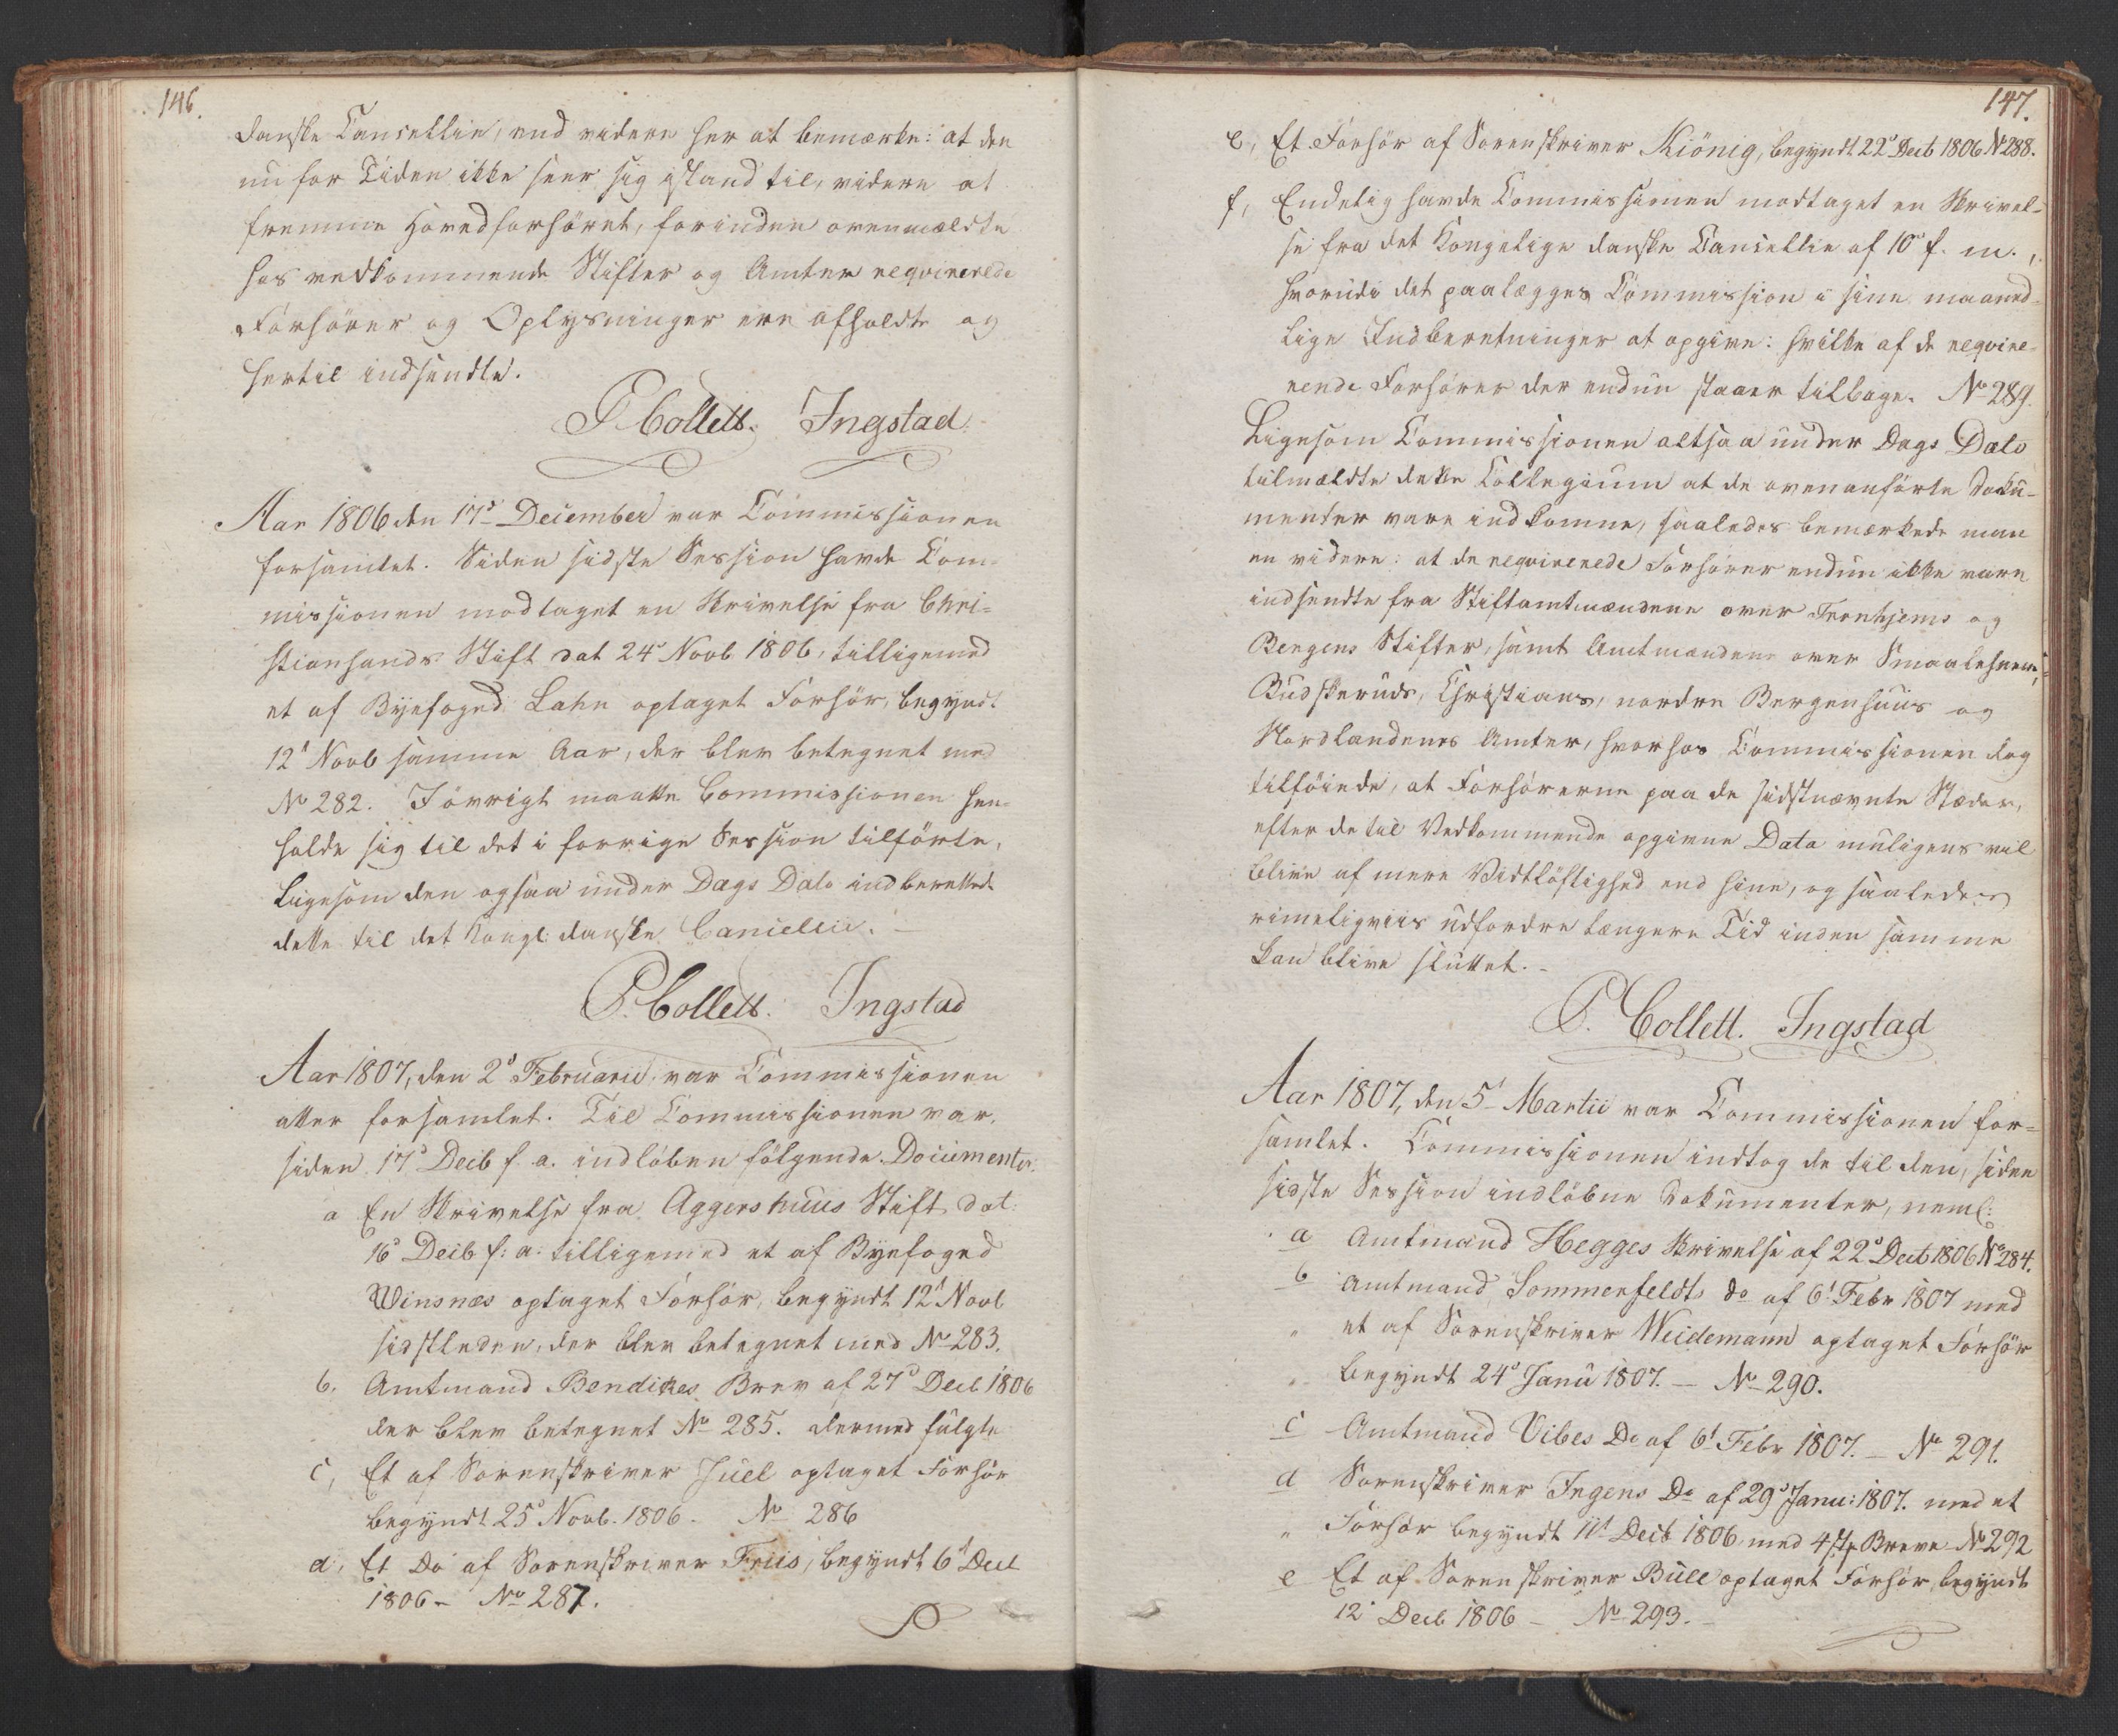 146.
danske Cancellie, end videre her at bemærke: at den
nu for Tiden ikke seer sig istand til, videre at
fremme Hovedforhöret, forinden ovenmældte
hos vedkommende Stifter og Amter reqvirerede
Forhörer og Oplysninger ere afholdte og
hertil indsendte.
P. Collett. Ingstad.
Aar 1806 den 17de December var Commissionen
forsamlet. Siden sidste Session havde Com-
missionen modtaget en Skrivelse fra Chri-
stiansands Stift dat 24de Novb 1806, tilligemed
et af Byefoged Lahn optaget Forhör, begyndt
12te Novb samme Aar, der blev betegnet med
No 282. I övrigt maatte Commissionen hen-
holde sig til det i forrige Session tilförte,
ligesom den ogsaa under Dags Dato indberettede
dette til det Kongl: danske Cancellie. –
P. Collett. Ingstad
Aar 1807, den 2de Februarii var Commissionen
atter forsamlet. Til Commissionen var,
siden 17de Decb f. a. indlöben fölgende Documenter:
a En Skrivelse fra Aggershuus Stift dat:
16de Decb f: a: tilligemed et af Byefoged
Winsnæs optaget Forhör, begyndt 12te Novb
sidstleden, der blev betegnet med No 283.
b. Amtmand Bendixes Brev af 27de Decb 1806
der blev betegnet No 285. dermed fulgte
c, Et af Sorenskriver Juel optaget Forhör
begyndt 25de Novb. 1806. No 286
d, Et Do af Sorenskriver Friis, begyndt 6te Decb
1806 – No 287.
147.
e, Et Forhör af Sorenskriver Kiönig, begyndt 22de Decb 1806 No 288.
f, Endelig havde Commissionen modtaget en Skrivel-
se fra det Kongelige danske Cancellie af 10de f. m.,
hvorudi det paalægges Commission i sine maaned-
lige Indberetninger at opgive: hvilke af de reqvire-
rende Forhörer der endnu staaer tilbage. No 289.
Ligesom Commissionen altsaa under Dags Dato
tilmældte dette Collegium at de ovenanförte Doku-
menter vare indkomne, saaledes bemærkede man
en videre: at de reqvirerede Forhörer endnu ikke vare
indsendte fra Stiftamtmændene over Tronhjems og
Bergens Stifter, samt Amtmændene over Smaalehnene,
Budskeruds, Christians, nordre Bergenhuus og
Nordlandenes Amter, hvorhos Commissionen dog
tilföiede, at Forhörerne paa de sidstnævnte Stæder,
efter de til Vedkommende opgivne Data muligens vil
blive af mere Vidtlöftighed end hine, og saaledes
rimeligviis udfordre længere Tid inden samme
kan blive sluttet. –
P. Collett. Ingstad
Aar 1807, den 5te Martii var Commissionen for-
samlet. Commissionen indtog de til den, siden
sidste Session indlöbne Dokumenter, neml:
a Amtmand Hegges Skrivelse af 22de Decb 1806 No 284.
b Amtmand Sommerfeldts do af 6te Febr 1807 med
" et af Sorenskriver Weidemann optaget Forhör
" begyndt 24de Janu 1807. – No 290.
c Amtmand Vibes Do af 6te Febr 1807. – No 291.
d Sorenskriver Ingens Do af 29de Janu: 1807. med et
" Forhör begyndt 11te Decb 1806, med 4 st. Breve No 292
e Et af Sorenskriver Bull optaget Forhör, begyndt
12te Decb 1806 – No 293. –